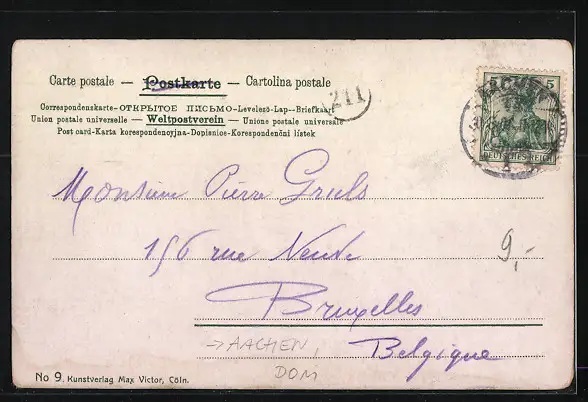 Carte postale — Postkarte — Cartolina postale
Correspondenskarte-ОТКРЫТОЕ ПИСЬМО-Levelezö-Lap--Briefkaart
Union postale universelle — Weltpostverein — Unione postale universale
Post card-Karta korespondencyjna-Dopisnice-Korespondenční lístek
211
5 5
DEUTSCHES REICH
Monsieur Pierre
156 rue Neuve
9,-
Bruxelles
→ AACHEN,
Belgique
DOM
No 9. Kunstverlag Max Victor, Cöln.